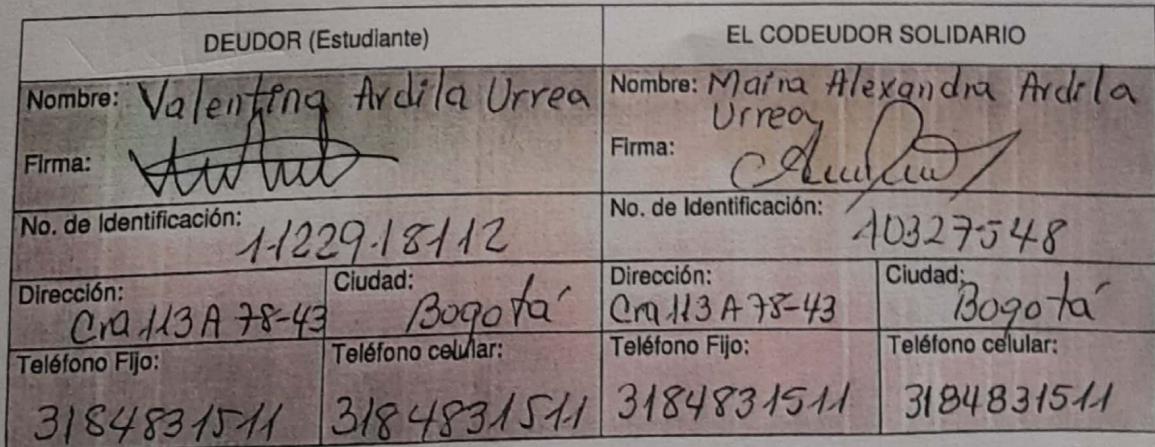 DEUDOR (Estudiante)
EL CODEUDOR SOLIDARIO
Nombre: Valentina Ardila Urrea
Nombre: Maira Alexandra Ardila
Urrea
Firma:
Firma:
No. de Identificación: 1122918112
No. de Identificación: 10327548
Dirección: Cra 113 A 78-43
Ciudad: Bogotá
Dirección: Cra 113 A 78-43
Ciudad: Bogotá
Teléfono Fijo: 3184831511
Teléfono celular: 3184831511
Teléfono Fijo: 3184831511
Teléfono celular: 3184831511